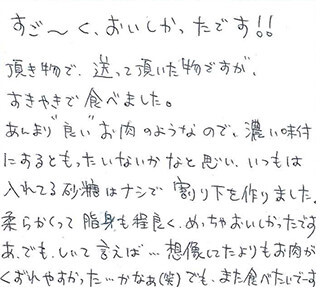 すご〜く、おいしかったです!!
頂き物で、送って頂いた物ですが、
すきやきで食べました。
あんまり"良い"お肉のようなので、濃い味付
にするともったいないかなと思い、いつもは
入れてる砂糖はナシで割り下を作りました。
柔らかくって脂身も程良く、めっちゃおいしかったです
あ、でも、しいて言えば…想像してたよりもお肉が
くずれやすかった…かなぁ(笑)でも、また食べたいでーす